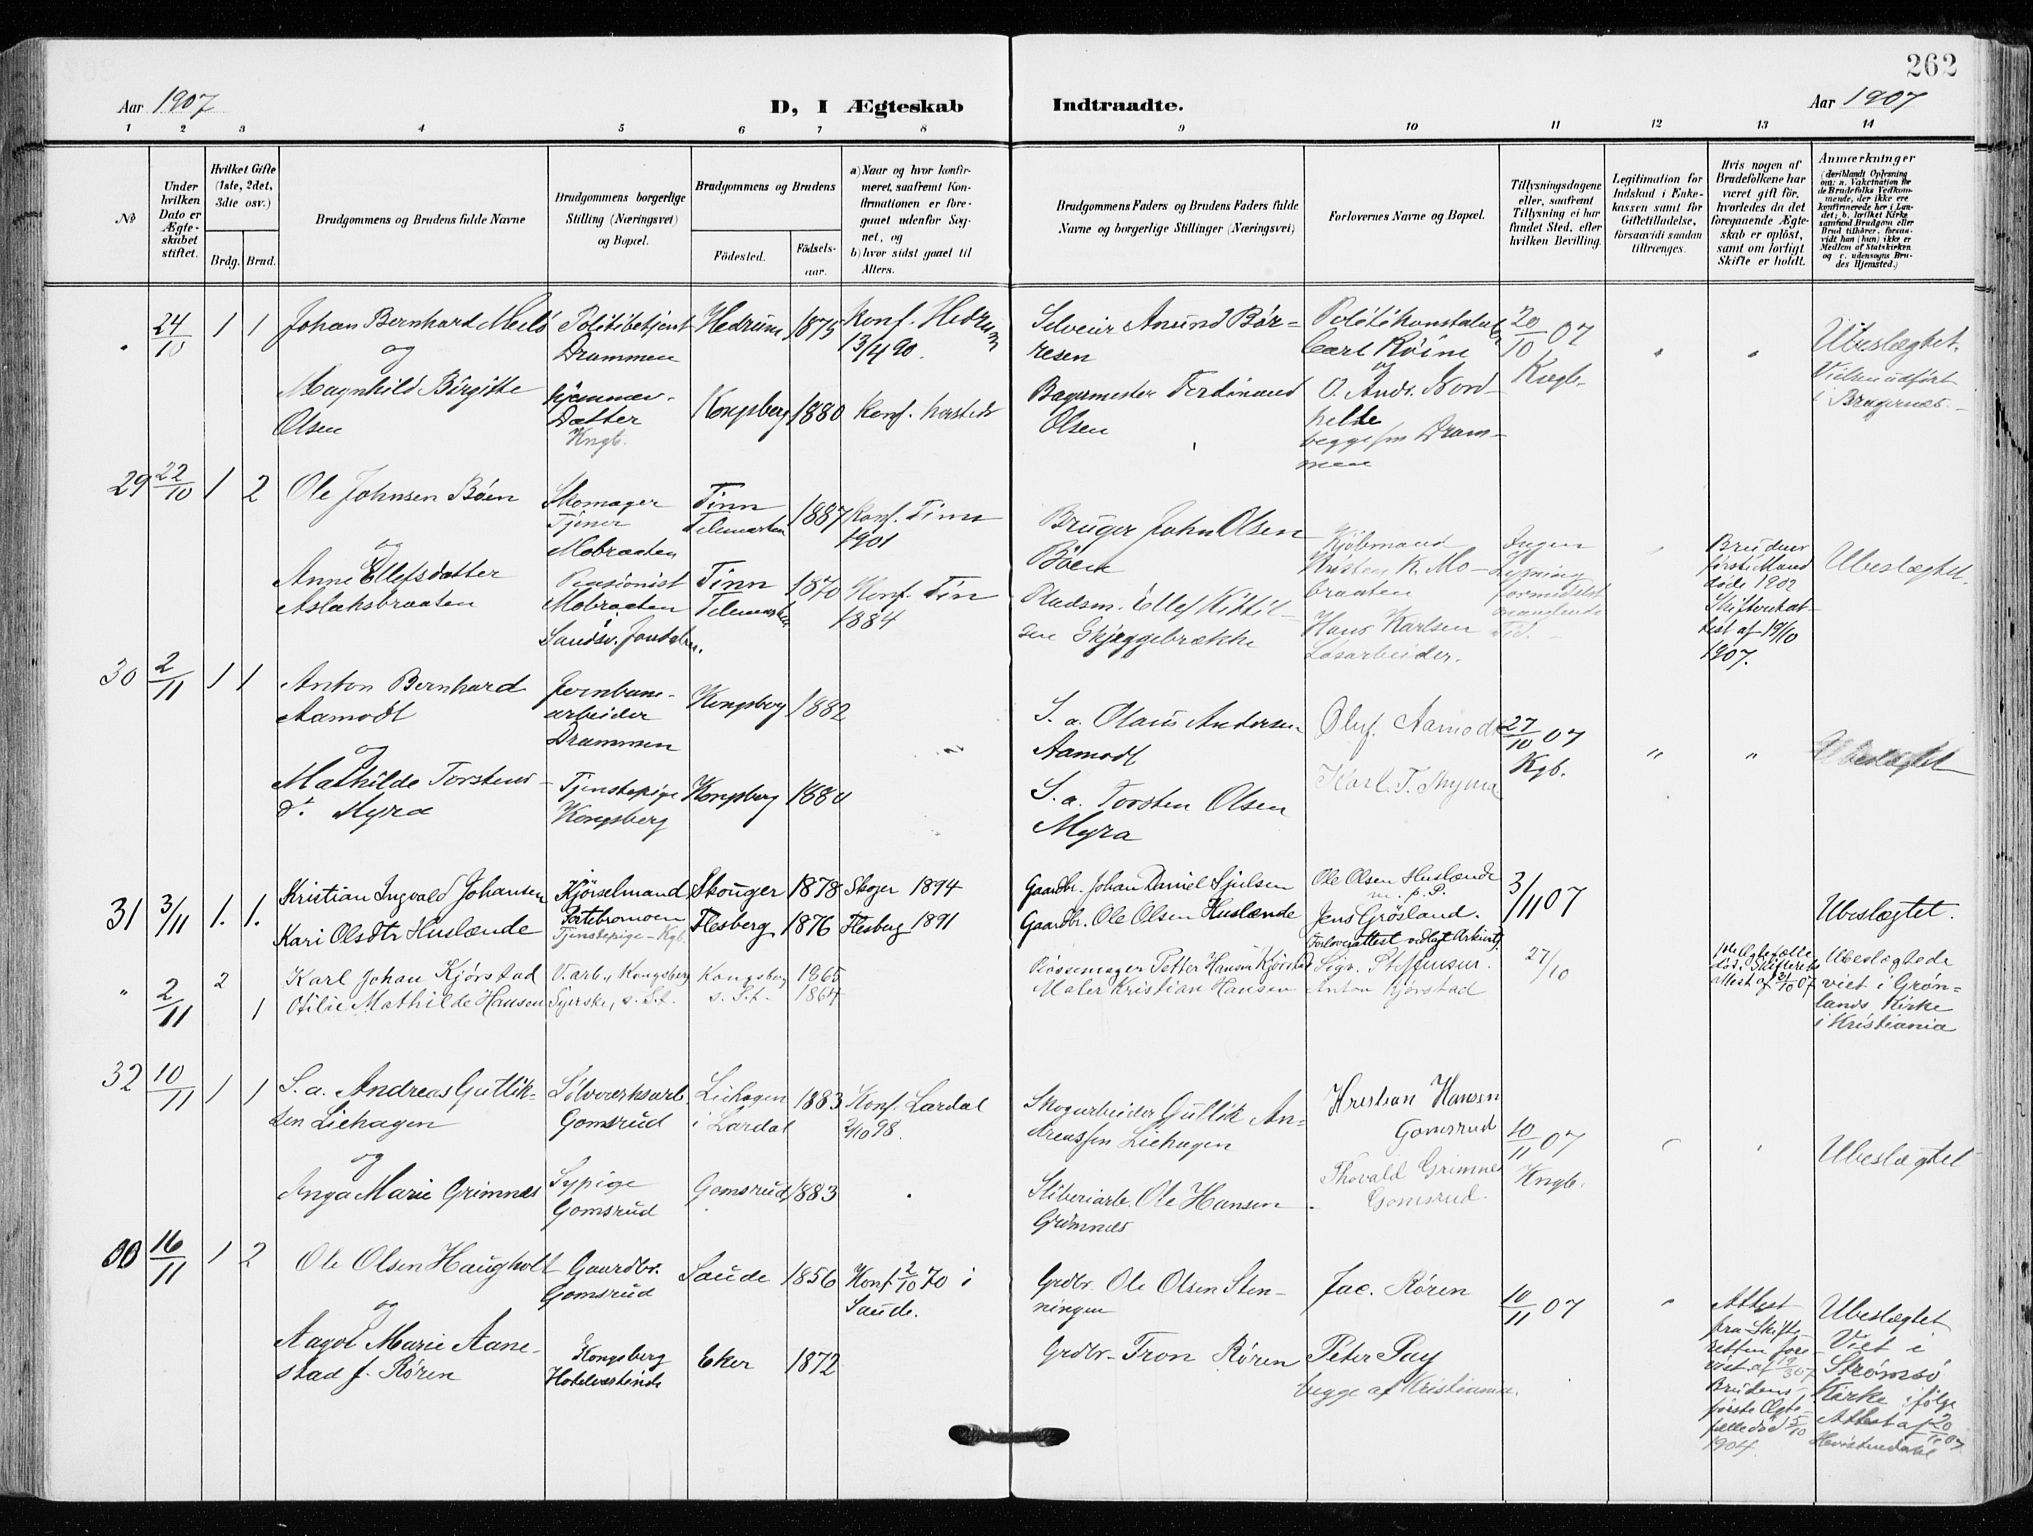 262
Aar 1907
D, I Ægteskab Indtraadte.
Aar 1907
1 2 3 4 5 6 7 8 9 10 11 12 13 14
No
Under hvilken Dato er Ægteskabet stiftet.
Hvilket Gifte (1ste, 2det, 3dte osv.)
Brdg. Brud.
Brudgommens og Brudens fulde Navne
Brudgommens borgerlige Stilling (Næringsvei) og Bopæl.
Brudgommens og Brudens
Fødested.
Fødselsaar.
a) Naar og hvor konfirmeret, saafremt Konfirmationen er foregaaet udenfor Sognet, og
b) hvor sidst gaaet til Alters.
Brudgommens Faders og Brudens Faders fulde Navne og borgerlige Stillinger (Næringsvei)
Forlovernes Navne og Bopæl.
Tillysningsdagene eller, saafremt Tillysning ei har fundet Sted, efter hvilken Bevilling.
Legitimation for Indskud i Enkekassen samt for Giftetilladelse, forsaavidt saadan tiltrænges.
Hvis nogen af Brudefolkene har været gift før, hvorledes da det foregaaende Ægteskab er opløst, samt om lovligt Skifte er holdt.
Anmærkninger
(deriblandt Oplysning om: a. Vakcination for de Brudefolks Vedkommende, der ikke ere konfirmerede her i Landet; b. hvilket Kirkesamfund Brudgom eller Brud tilhører, forsaavidt han (hun) ikke er Medlem af Statskirken og c. udensogns Brudes Hjemsted.)
" 24/10 1 1
Johan Bernhard
og
Magnhild Birgitte
Olsen
Politibetjent
Drammen
hjemmev.
Datter
Kngb.
Hedrum 1875
Konf. Hedrum
13/4 90.
Kongsberg 1880 Konf. hersteds
Anund Børresen
Bagermester Ferdinand
Olsen
Politikonstabel
Carl
og
O. Andr. Nordhelle
begge fra Drammen
20/10 07
Kngb.
" "
Ubeslægtet.
Vielsen udført
i Bragernes.
29 22/10 1 2
Ole Johnsen Bøen
og
Anne Ellefsdatter
Aslaksbraaten
Skomager
Tjener
Mobraaten
Pensionist
Mobraaten
Sandsv. Jondalen.
Tinn
Telemarken
1887 Konf. Tinn
1901
Tinn
Telemarken
1870 Konf. Tin
1884
Bruger John Olsen
Bøen
Pladsm. Ellef Kittilsen Skjæggebrække
Kjøbmand
Kristen K. Mobraaten
Hans Karlsen
Løsarbeider.
Ingen
Lysning
formedelst
manglende
Tid.
Brudens
første Mand
døde 1902
Skifteretattest af 19/10
1907.
Ubeslægtet.
30 2/11 1 1
Anton Bernhard
Aamodt
og
Mathilde Torstensd. Myra
Jernbanearbeider
Drammen
Tjenstepige
Kongsberg
Kongsberg 1882
Kongsberg 1880
S. a. Olaus Andersen
Aamodt
S. a. Torsten Olsen
Myra
Oluf. Aamodt
Karl T. Myra
27/10 07
Kgb.
" "
Ubeslægtet
31 3/11 1. 1.
Kristian Ingvald Johansen
Kari Olsdtr Huslænde
Kjørselmand
Tjenstepige - Kgb.
Skouger 1878 Skoger 1894
Flesberg 1876 Flesberg 1891
Gaardbr. Johan Daniel Sjulsen
Gaardbr. Ole Olsen Huslænde
Ole Olsen Huslænde
m. p. P.
Jens Grøsland.
3/11 07
Ubeslægtet.
" 2/11 2 1
Karl Johan Kjørstad
Otilie Mathilde Hansen
V. arb., Kongsberg
Syerske, s. St.
Kongsberg 1865
s. St. 1864
Bøssemager Petter Hansen Kjørstad
Maler Kristian Hansen
Sigv. Steffensen.
Anton Kjørstad
27/10
Ubeslægtede
viet i Grønlands Kirke
i Kristiania
32 10/11 1 1
S. a. Andreas Gulliksen Liehagen
og
Anga Marie Grimnes
Sølvverksarb.
Gomsrud
Sypige
Gomsrud
Liehagen
i Lardal
1883 Konf. Lardal
2/10 98.
Gomsrud 1883
Skogarbeider Gullik Andreassen Liehagen
Sliberiarb. Ole Hansen
Grimnes
Kristian Hansen
Gomsrud
Thorvald Grimnes
Gomsrud.
10/11 07
Kngb.
Ubeslægtet
16/11 1 2
Ole Olsen Haugholt
og
Aagot Marie Aanestad f. Røren
Gaardbr.
Gomsrud
Kongsberg
Hotelværtinde
Saude 1856 Konf. 2/10 70 i
Saude.
Eker 1872
Grdbr. Ole Olsen Stenningen
Grdbr. Tron Røren
Jac. Røren
Peter Pay
begge af Kristiania.
10/11 07
Attest
fra Skifteretten
Brudens
første Ægtefælle død 5/10
1904.
Ubeslægtet
Viet i
Strømsø
Kirke ifølge
Attest af